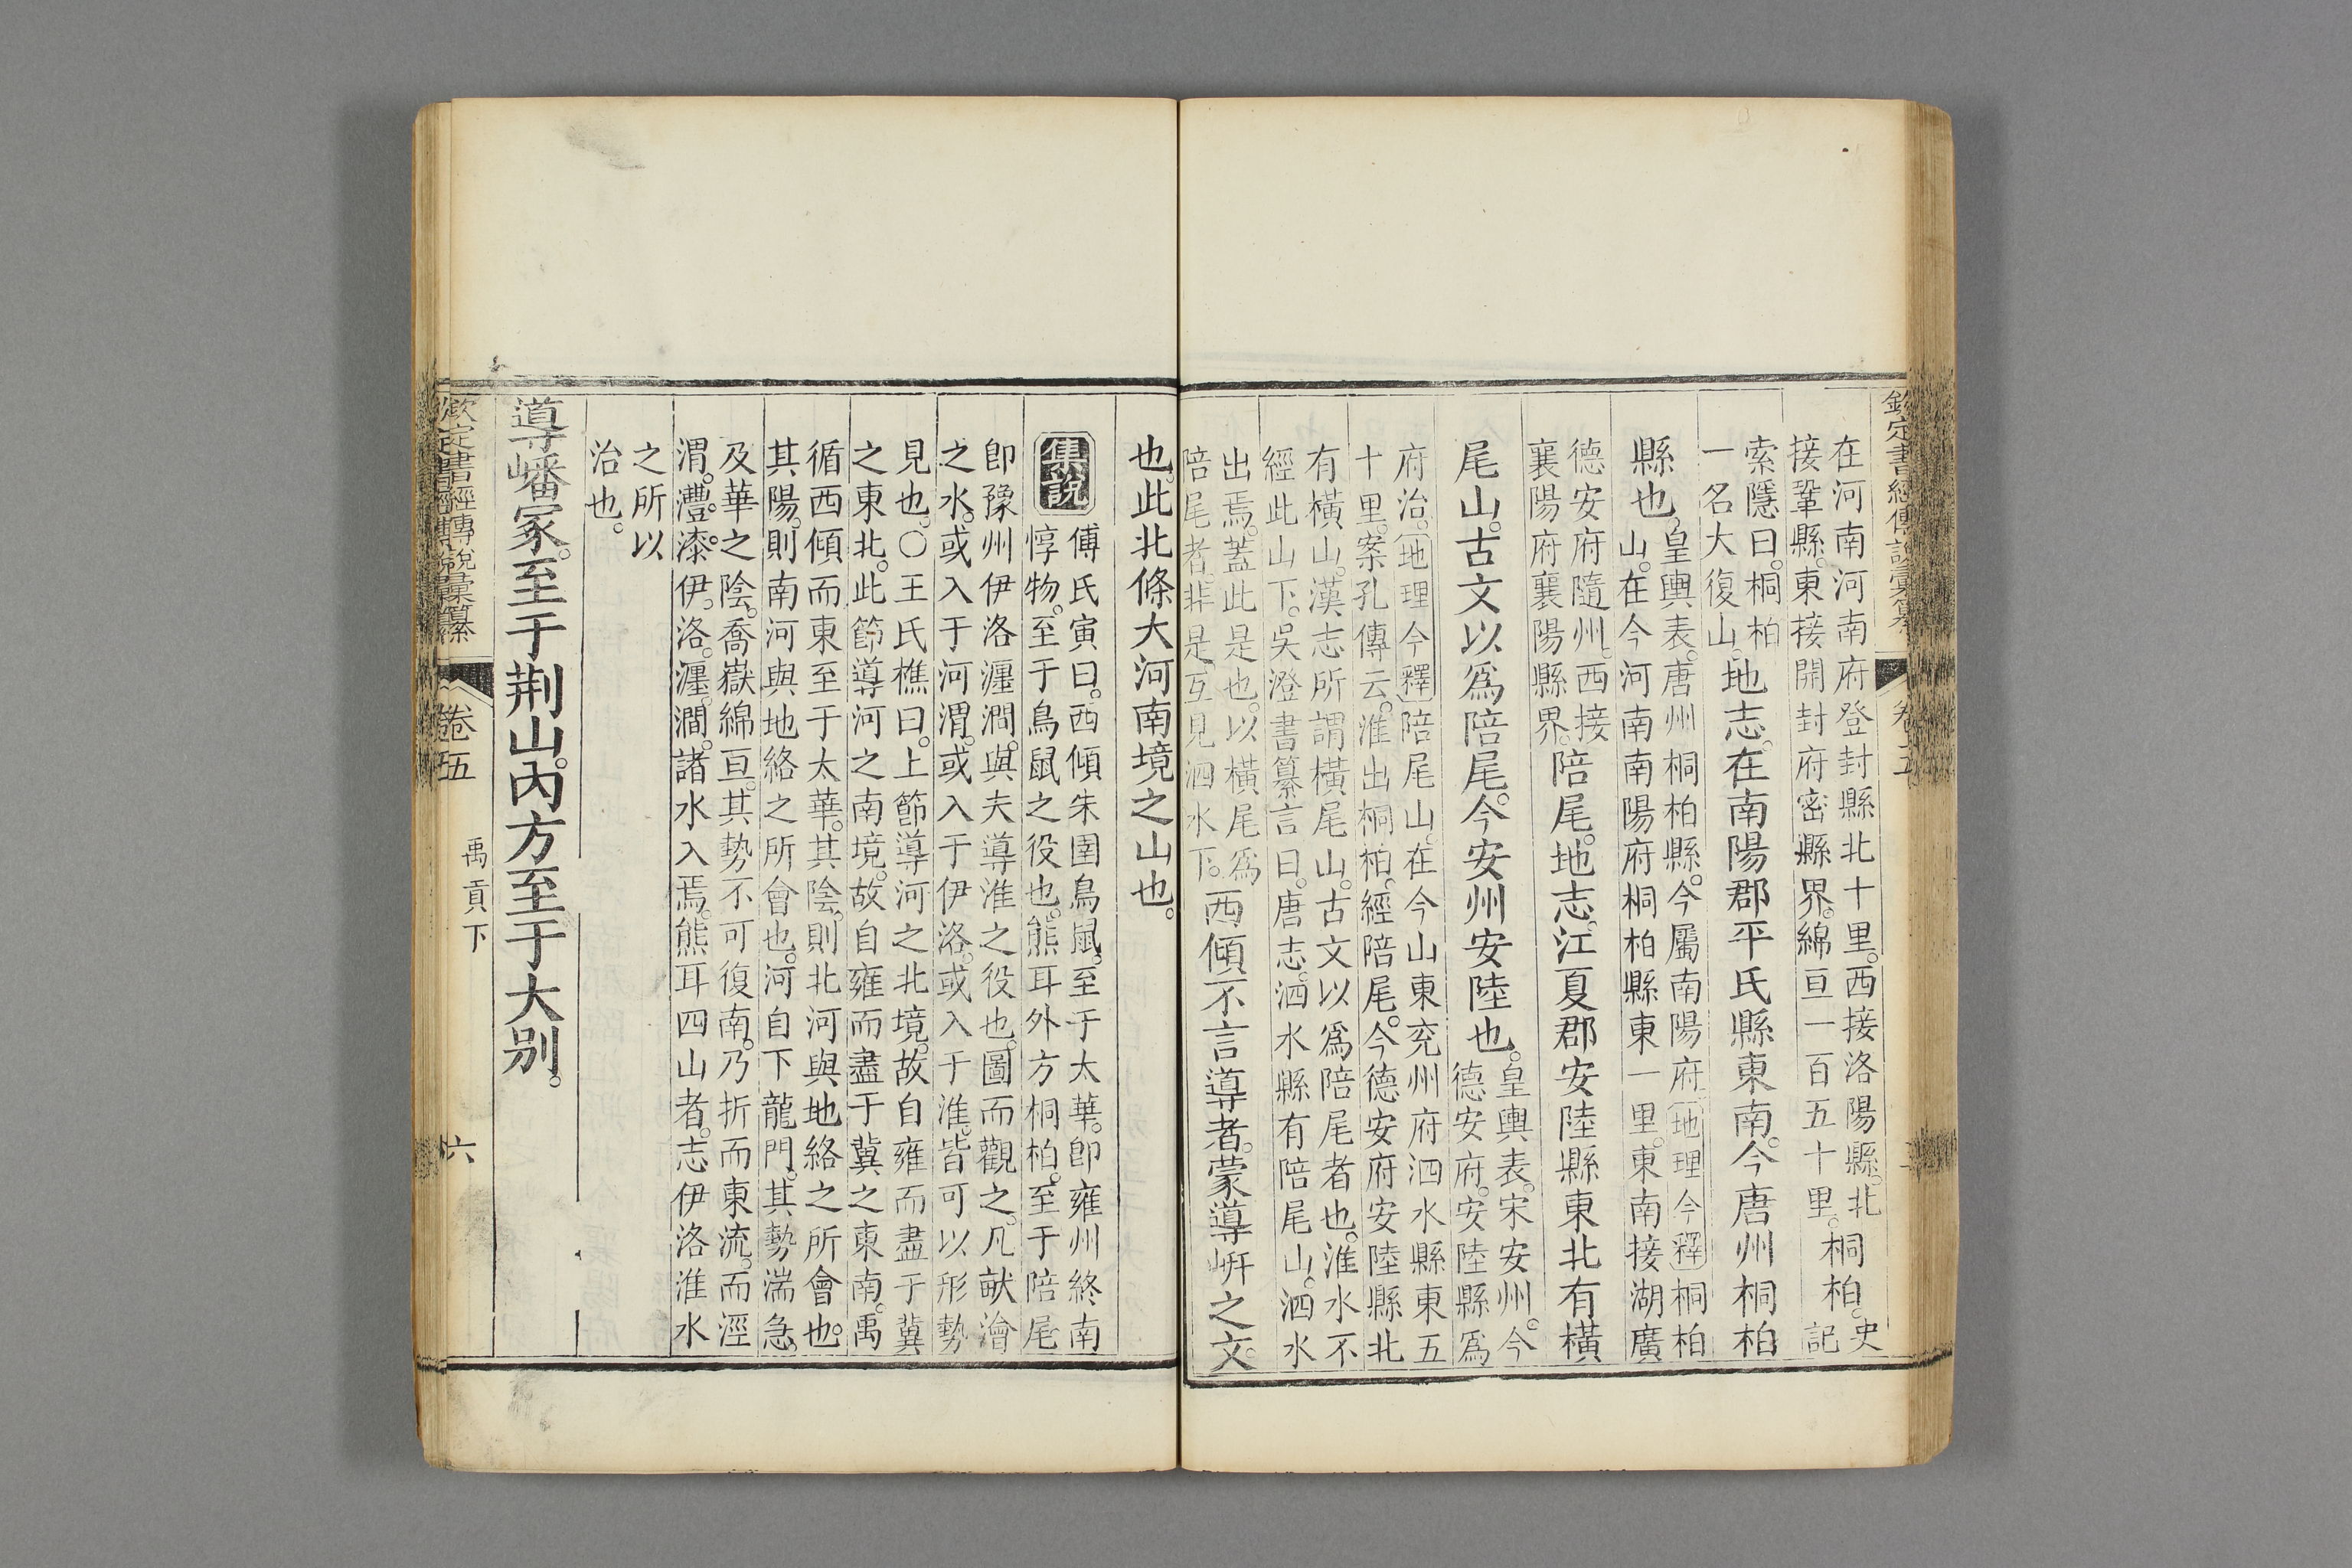 欽定書經傳說彙纂 卷五
在河南河南府登封縣北十里西接洛陽縣北
接鞏縣東接開封府密縣界綿亘一百五十里桐柏史
記
索隱曰桐柏
一名大復山地志在南陽郡平氏縣東南今唐州桐柏
縣也皇輿表唐州桐柏縣今屬南陽府地理今釋桐柏
山在今河南南陽府桐柏縣東一里東南接湖廣
德安府隨州西接
襄陽府襄陽縣界陪尾地志江夏郡安陸縣東北有橫
尾山古文以爲陪尾今安州安陸也皇輿表宋安州今
德安府安陸縣爲
府治地理今釋陪尾山在今山東兖州府泗水縣東五
十里案孔傳云淮出桐柏經陪尾今德安府安陸縣北
有橫山漢志所謂橫尾山古文以爲陪尾者也淮水不
經此山下吳澄書纂言曰唐志泗水縣有陪尾山泗水
出焉蓋此是也以橫尾爲
陪尾者非是互見泗水下西傾不言導者蒙導岍之文
也此北條大河南境之山也
集說
傅氏寅曰西傾朱圉鳥鼠至于太華卽雍州終南
惇物至于鳥鼠之役也熊耳外方桐柏至于陪尾
卽豫州伊洛瀍澗與夫導淮之役也圖而觀之凡畎澮
之水或入于河渭或入于伊洛或入于淮皆可以形勢
見也○王氏樵曰上節導河之北境故自雍而盡于冀
之東北此節導河之南境故自雍而盡于冀之東南禹
循西傾而東至于太華其陰則北河與地絡之所會也
其陽則南河與地絡之所會也河自下龍門其勢湍急
及華之陰喬嶽綿亘其勢不可復南乃折而東流而涇
渭灃漆伊洛瀍澗諸水入焉熊耳四山者志伊洛淮水
之所以
治也
導嶓冢至于荆山內方至于大别
欽定書經傳說彙纂 卷五 禹貢下 六